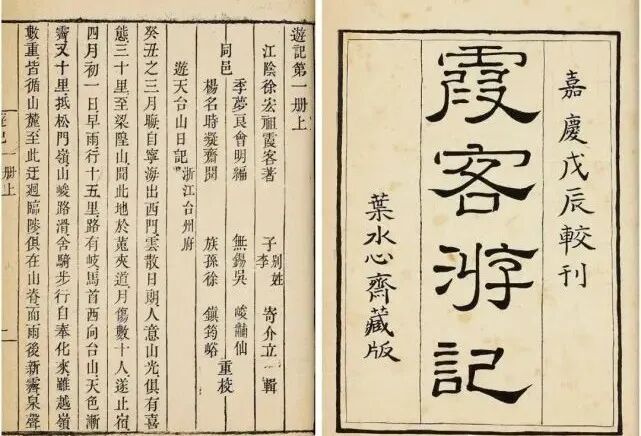 嘉慶戊辰較刊
霞客游記
葉水心齋藏版
遊記第一册上
江陰徐宏祖霞客著 子別姓李 寄介立 輯
季夢良會明編 無錫吳 峻 仙
同邑 重校
楊名時凝齋閱 族孫徐 鎮筠峪
遊天台山日記 浙江台州府
癸丑之三月晦自寧海出西門雲散日朗人意山光俱有喜
態三十里至梁隍山聞此地於菟夾道月傷數十人遂止宿
四月初一日早雨行十五里路有岐馬首西向台山天色漸
霽又十里抵松門嶺山峻路滑舍騎步行自奉化來雖越嶺
數重皆循山麓至此迂迴臨陟俱在山脊而雨後新霽泉聲
遊記 一册上